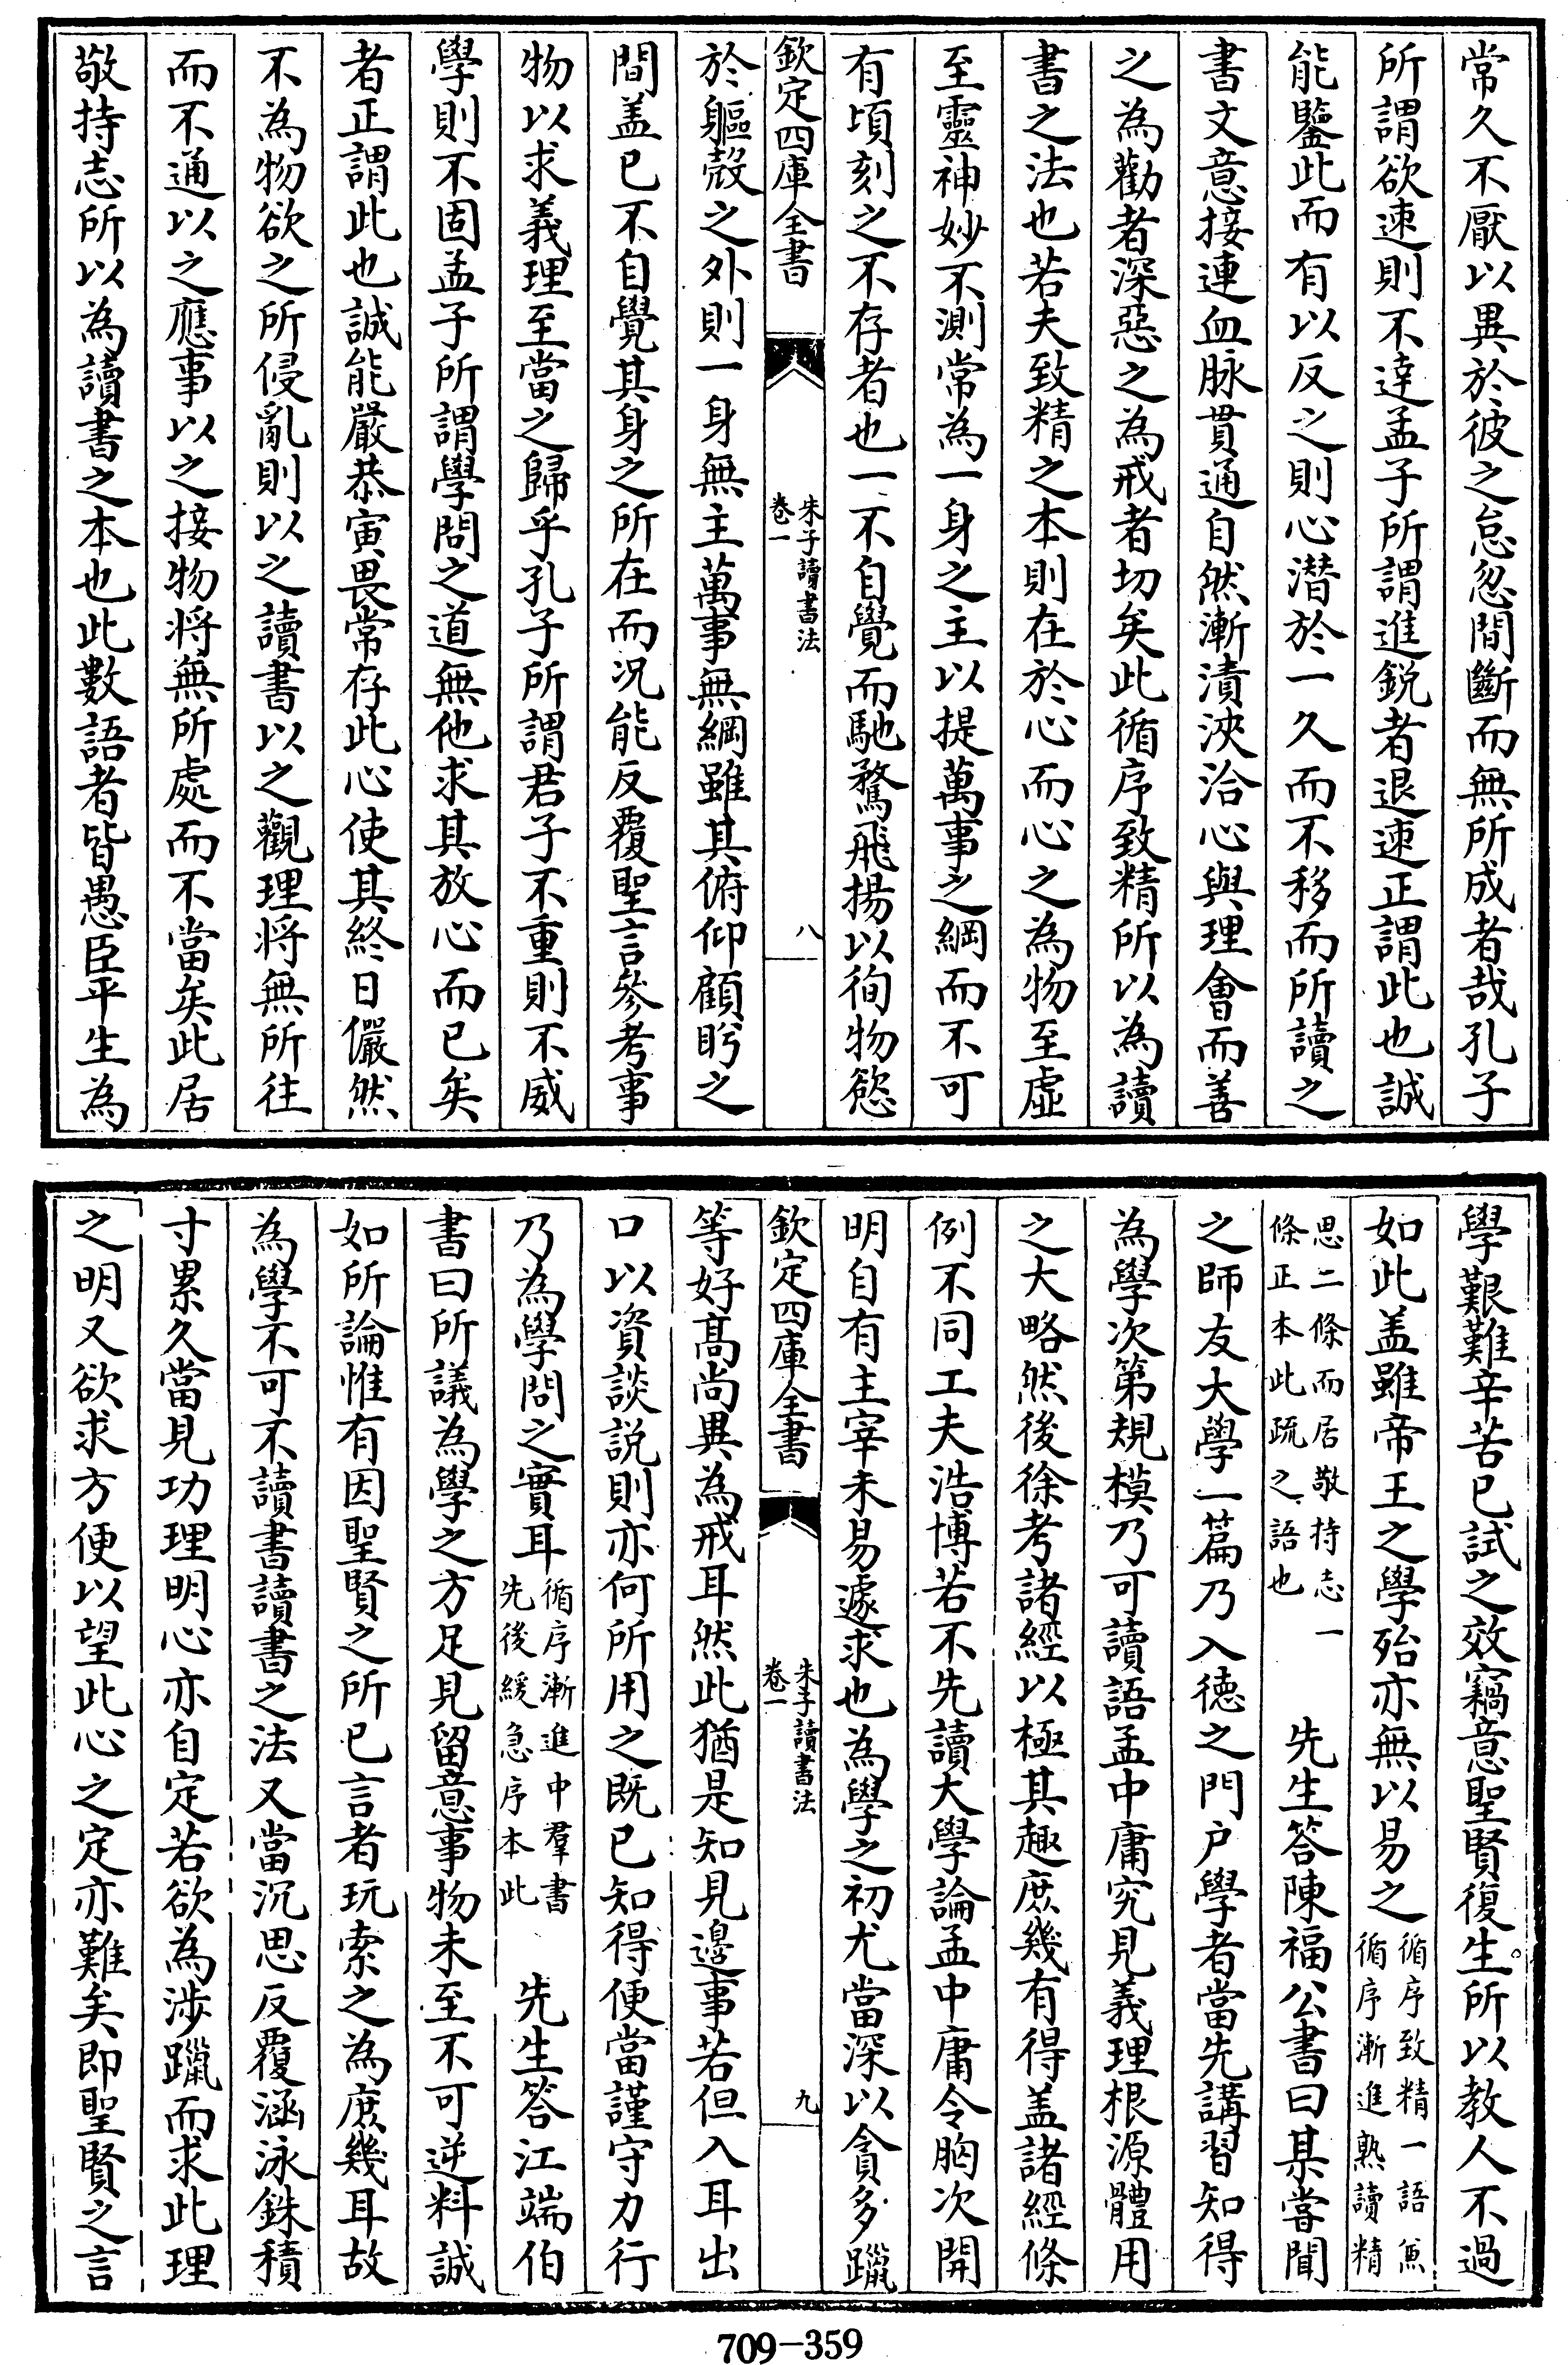 常久不厭以異於彼之怠忽間斷而無所成者哉孔子
所謂欲速則不達孟子所謂進銳者退速正謂此也誠
能鑒此而有以反之則心潛於一久而不移而所讀之
書文意接連血脉貫通自然漸漬浹洽心與理會而善
之為勸者深惡之為戒者切矣此循序致精所以為讀
書之法也若夫致精之本則在於心而心之為物至虛
至靈神妙不測常為一身之主以提萬事之綱而不可
有頃刻之不存者也一不自覺而馳騖飛揚以徇物慾
欽定四庫全書
朱子讀書法
卷一
八
於軀殼之外則一身無主萬事無綱雖其俯仰顧盻之
間盖已不自覺其身之所在而况能反覆聖言參考事
物以求義理至當之歸乎孔子所謂君子不重則不威
學則不固孟子所謂學問之道無他求其放心而已矣
者正謂此也誠能嚴恭寅畏常存此心使其終日儼然
不為物欲之所侵亂則以之讀書以之觀理將無所往
而不通以之應事以之接物將無所處而不當矣此居
敬持志所以為讀書之本也此數語者皆愚臣平生為
學艱難辛苦已試之效竊意聖賢復生所以教人不過
如此盖雖帝王之學殆亦無以易之
循序致精一語魚
循序漸進熟讀精
思二條而居敬持志一
條正本此疏之語也
先生答陳福公書曰某嘗聞
之師友大學一篇乃入德之門户學者當先講習知得
為學次第規模乃可讀語孟中庸究見義理根源體用
之大略然後徐考諸經以極其趣庶幾有得盖諸經條
例不同工夫浩博若不先讀大學論孟中庸令胸次開
明自有主宰未易遽求也為學之初尤當深以貪多躐
欽定四庫全書
朱子讀書法
卷一
九
等好高尚異為戒耳然此猶是知見邊事若但入耳出
口以資談説則亦何所用之既已知得便當謹守力行
乃為學問之實耳
循序漸進中羣書
先後緩急序本此
先生答江端伯
書曰所議為學之方足見留意事物未至不可逆料誠
如所論惟有因聖賢之所已言者玩索之為庶幾耳故
為學不可不讀書讀書之法又當沉思反覆涵泳銖積
寸累久當見功理明心亦自定若欲為涉躐而求此理
之明又欲求方便以望此心之定亦難矣即聖賢之言
709-359